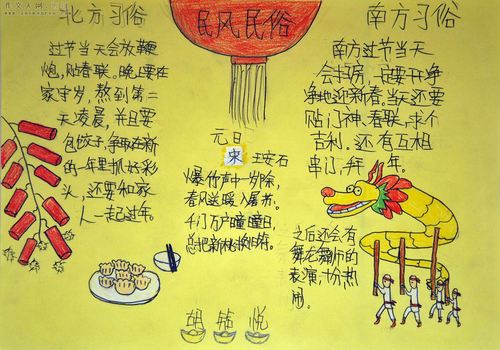 北方习俗
过节当天会放鞭
炮,贴春联。晚上要在
家守岁,熬到第二
天凌晨,并且要
包饺子,争取在新
的一年里抓好彩
头,还要和家
人一起过年。
民风民俗
元日
宋 王安石
爆竹声中一岁除,
春风送暖入屠苏。
千门万户曈曈日,
总把新桃换旧符。
南方习俗
南方过节当天
会扫房,一定要干干净
净地迎新春。当天还要
贴门神、春联,求个
吉利。还有互相
串门,拜年。
之后还会有
舞龙舞狮的
表演,十分热
闹。